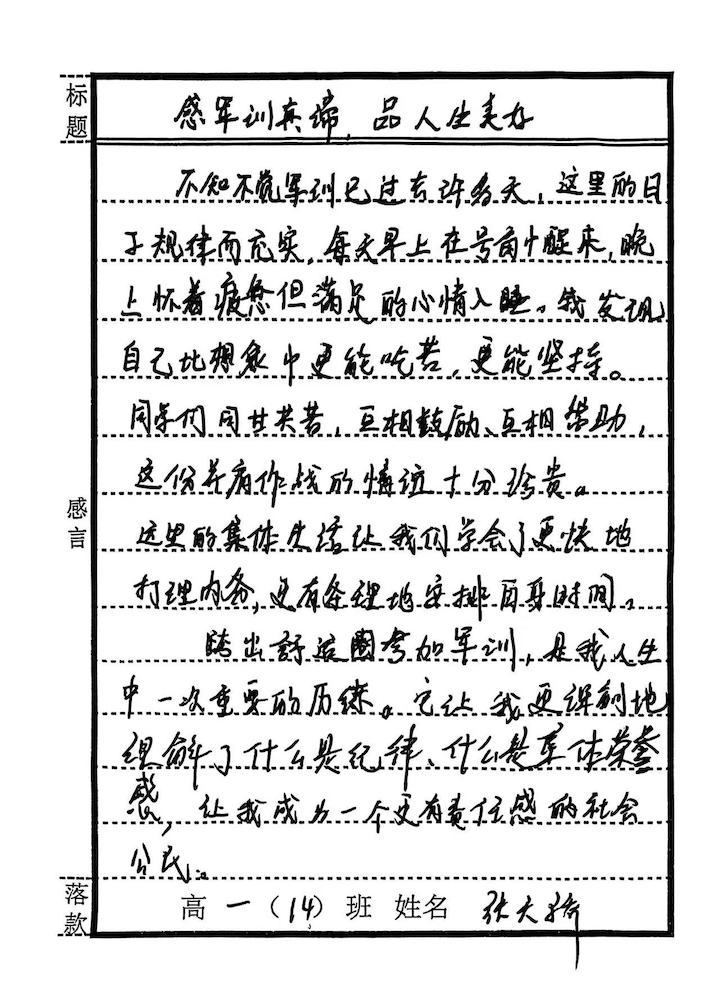 标题
感军训真谛,品人生美好
不知不觉军训已过去许多天,这里的日
子规律而充实。每天早上在号角中醒来,晚
上怀着疲惫但满足的心情入睡。我发现
自己比想象中更能吃苦,更能坚持。
同学们同甘共苦,互相鼓励、互相帮助,
这份并肩作战的情谊十分珍贵。
感言
这里的集体生活让我们学会了更快地
打理内务,更有条理地安排自身时间。
跨出舒适圈参加军训,是我人生
中一次重要的历练。它让我更深刻地
理解了什么是纪律、什么是集体荣誉
感,让我成为一个更有责任感的社会
公民。
落款
高一(14)班 姓名 张天骄